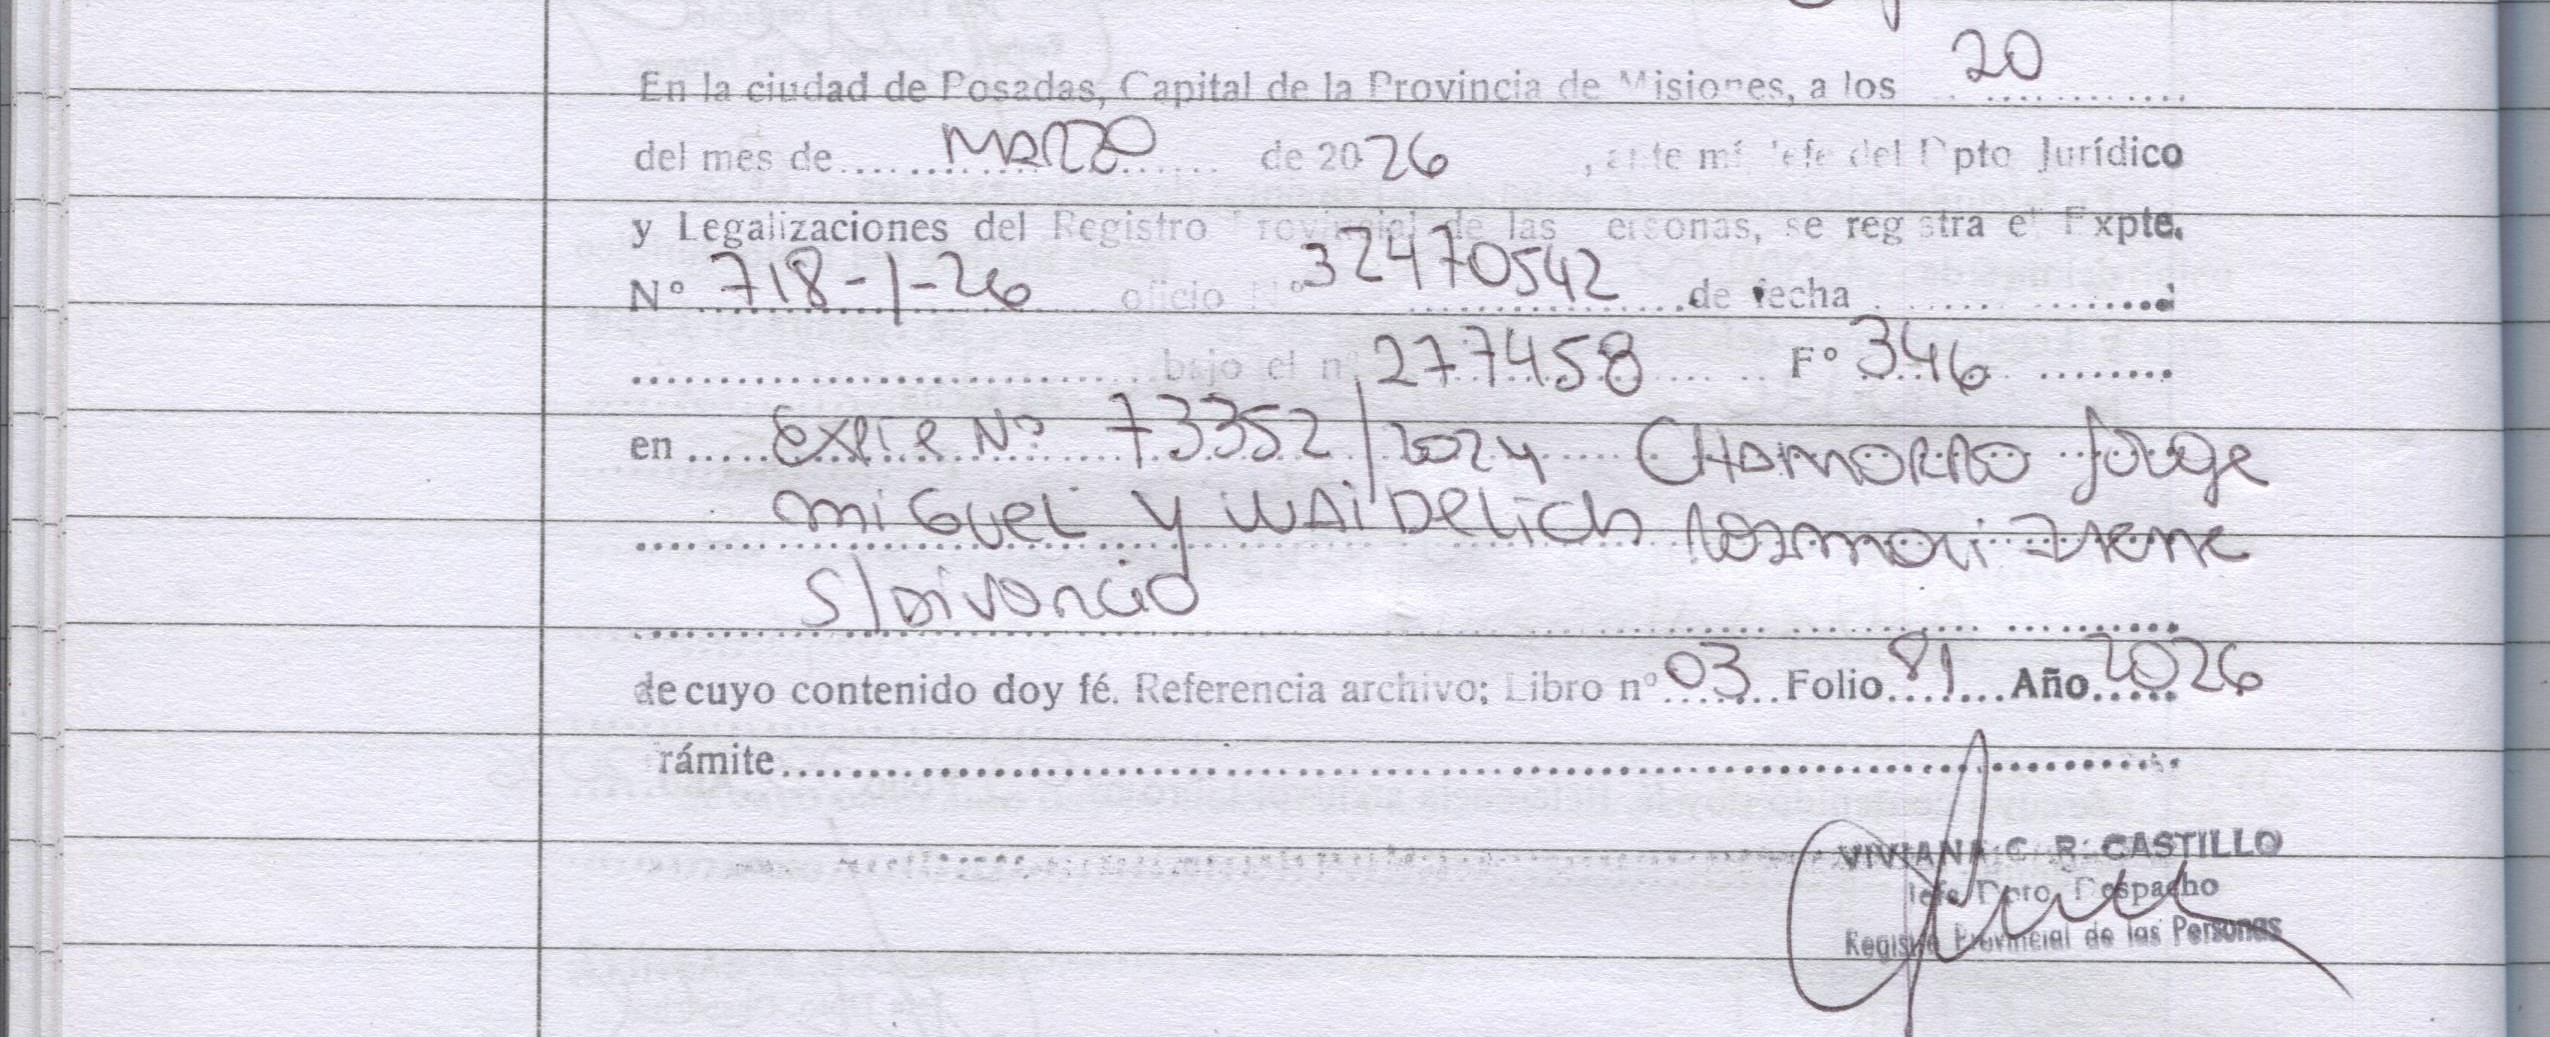 En la ciudad de Posadas, Capital de la Provincia de Misiones, a los 20
del mes de MARZO de 2026, ante mí Jefe del Dpto Jurídico
y Legalizaciones del Registro Provincial de las Personas, se registra el Expte.
Nº 718-1-26 oficio Nº 32470542 de fecha
bajo el nº 277458 Fº 346
en EXPTE Nº 73352/2024 CHAMORRO Jorge
miGUEL y WAIDELICH Irene
S/DIVORCIO
de cuyo contenido doy fé. Referencia archivo; Libro nº 03 Folio 81 Año 2026
rámite
VIVIANA C. R. CASTILLO
Jefe Dpto. Despacho
Registro Provincial de las Personas